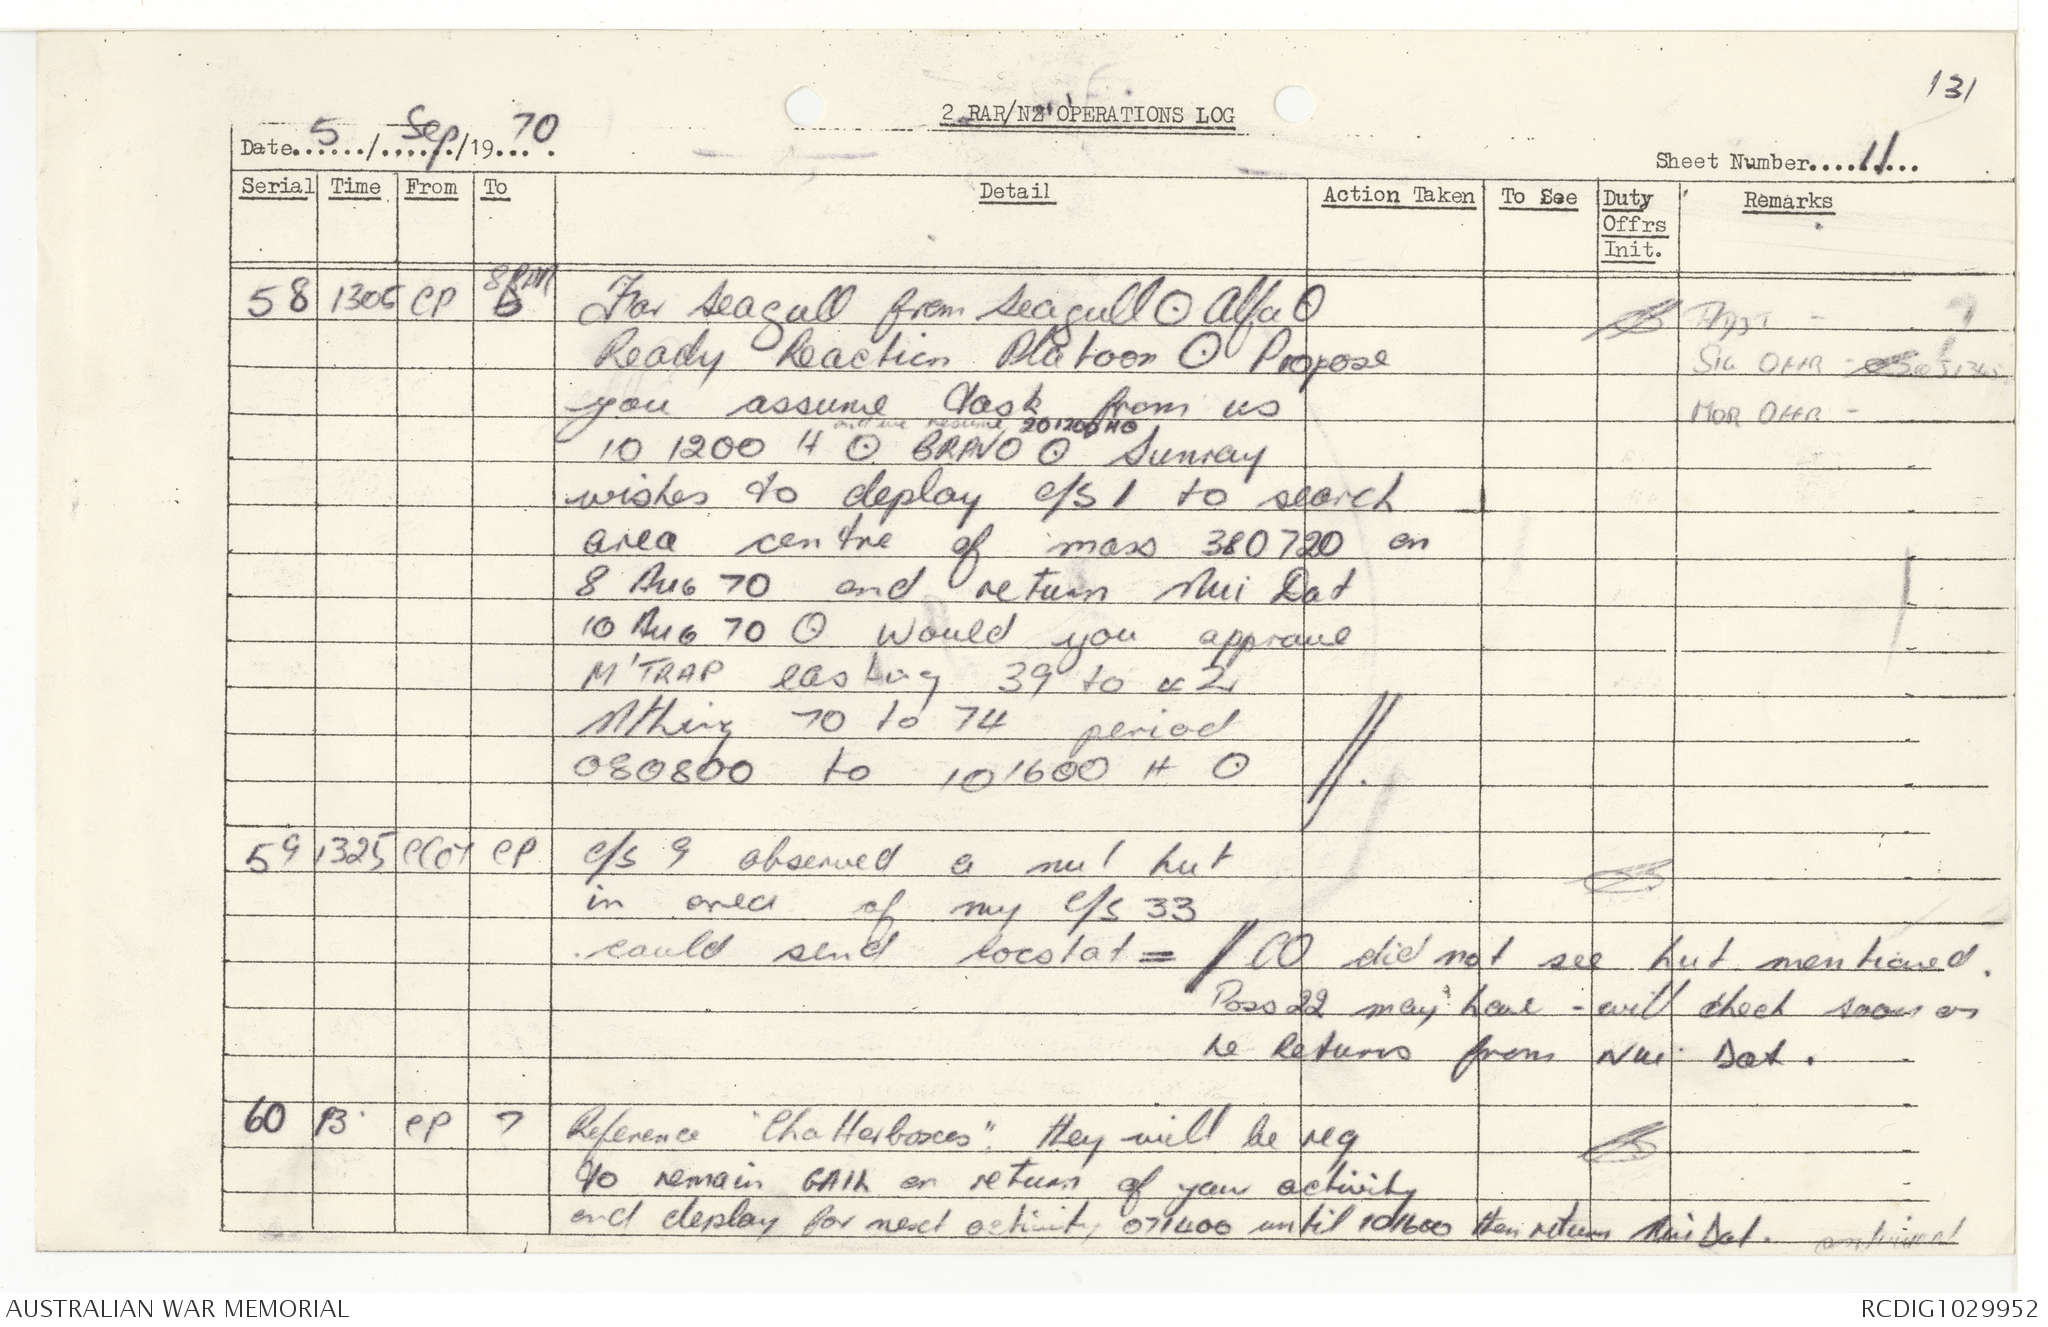 131
2 RAR/NZ OPERATIONS LOG
Date 5 / Sep /19 70
Sheet Number 11
Serial Time From To Detail Action Taken To See Duty Offrs Init. Remarks
58 1305 CP For Seagull from Seagull ⊙ Alfa ⊙
Ready Reaction Platoon ⊙ Propose
SIG OFFR -
you assume task from us
MOR OFFR -
resume 201200H⊙
10 1200 H ⊙ BRAVO ⊙ Sunray
wishes to deploy c/s 1 to search
area centre of mass 380720 on
8 Aug 70 and return Nui Dat
10 Aug 70 ⊙ Would you approve
M'TRAP easting 39 to 42
Nthing 70 to 74 period
080800 to 101600 H ⊙
59 1325 CP c/s 9 observed a hut
in area of my c/s 33
could send locstat = // CO did not see hut mentioned.
Poss 22 may have - will check soon as
he returns from Nui Dat.
60 CP 7 Reference "Chatterboxes". they will be req
to remain on return of your activity
and deploy for next activity 071400 until 101600 then return Nui Dat.
AUSTRALIAN WAR MEMORIAL
RCDIG1029952